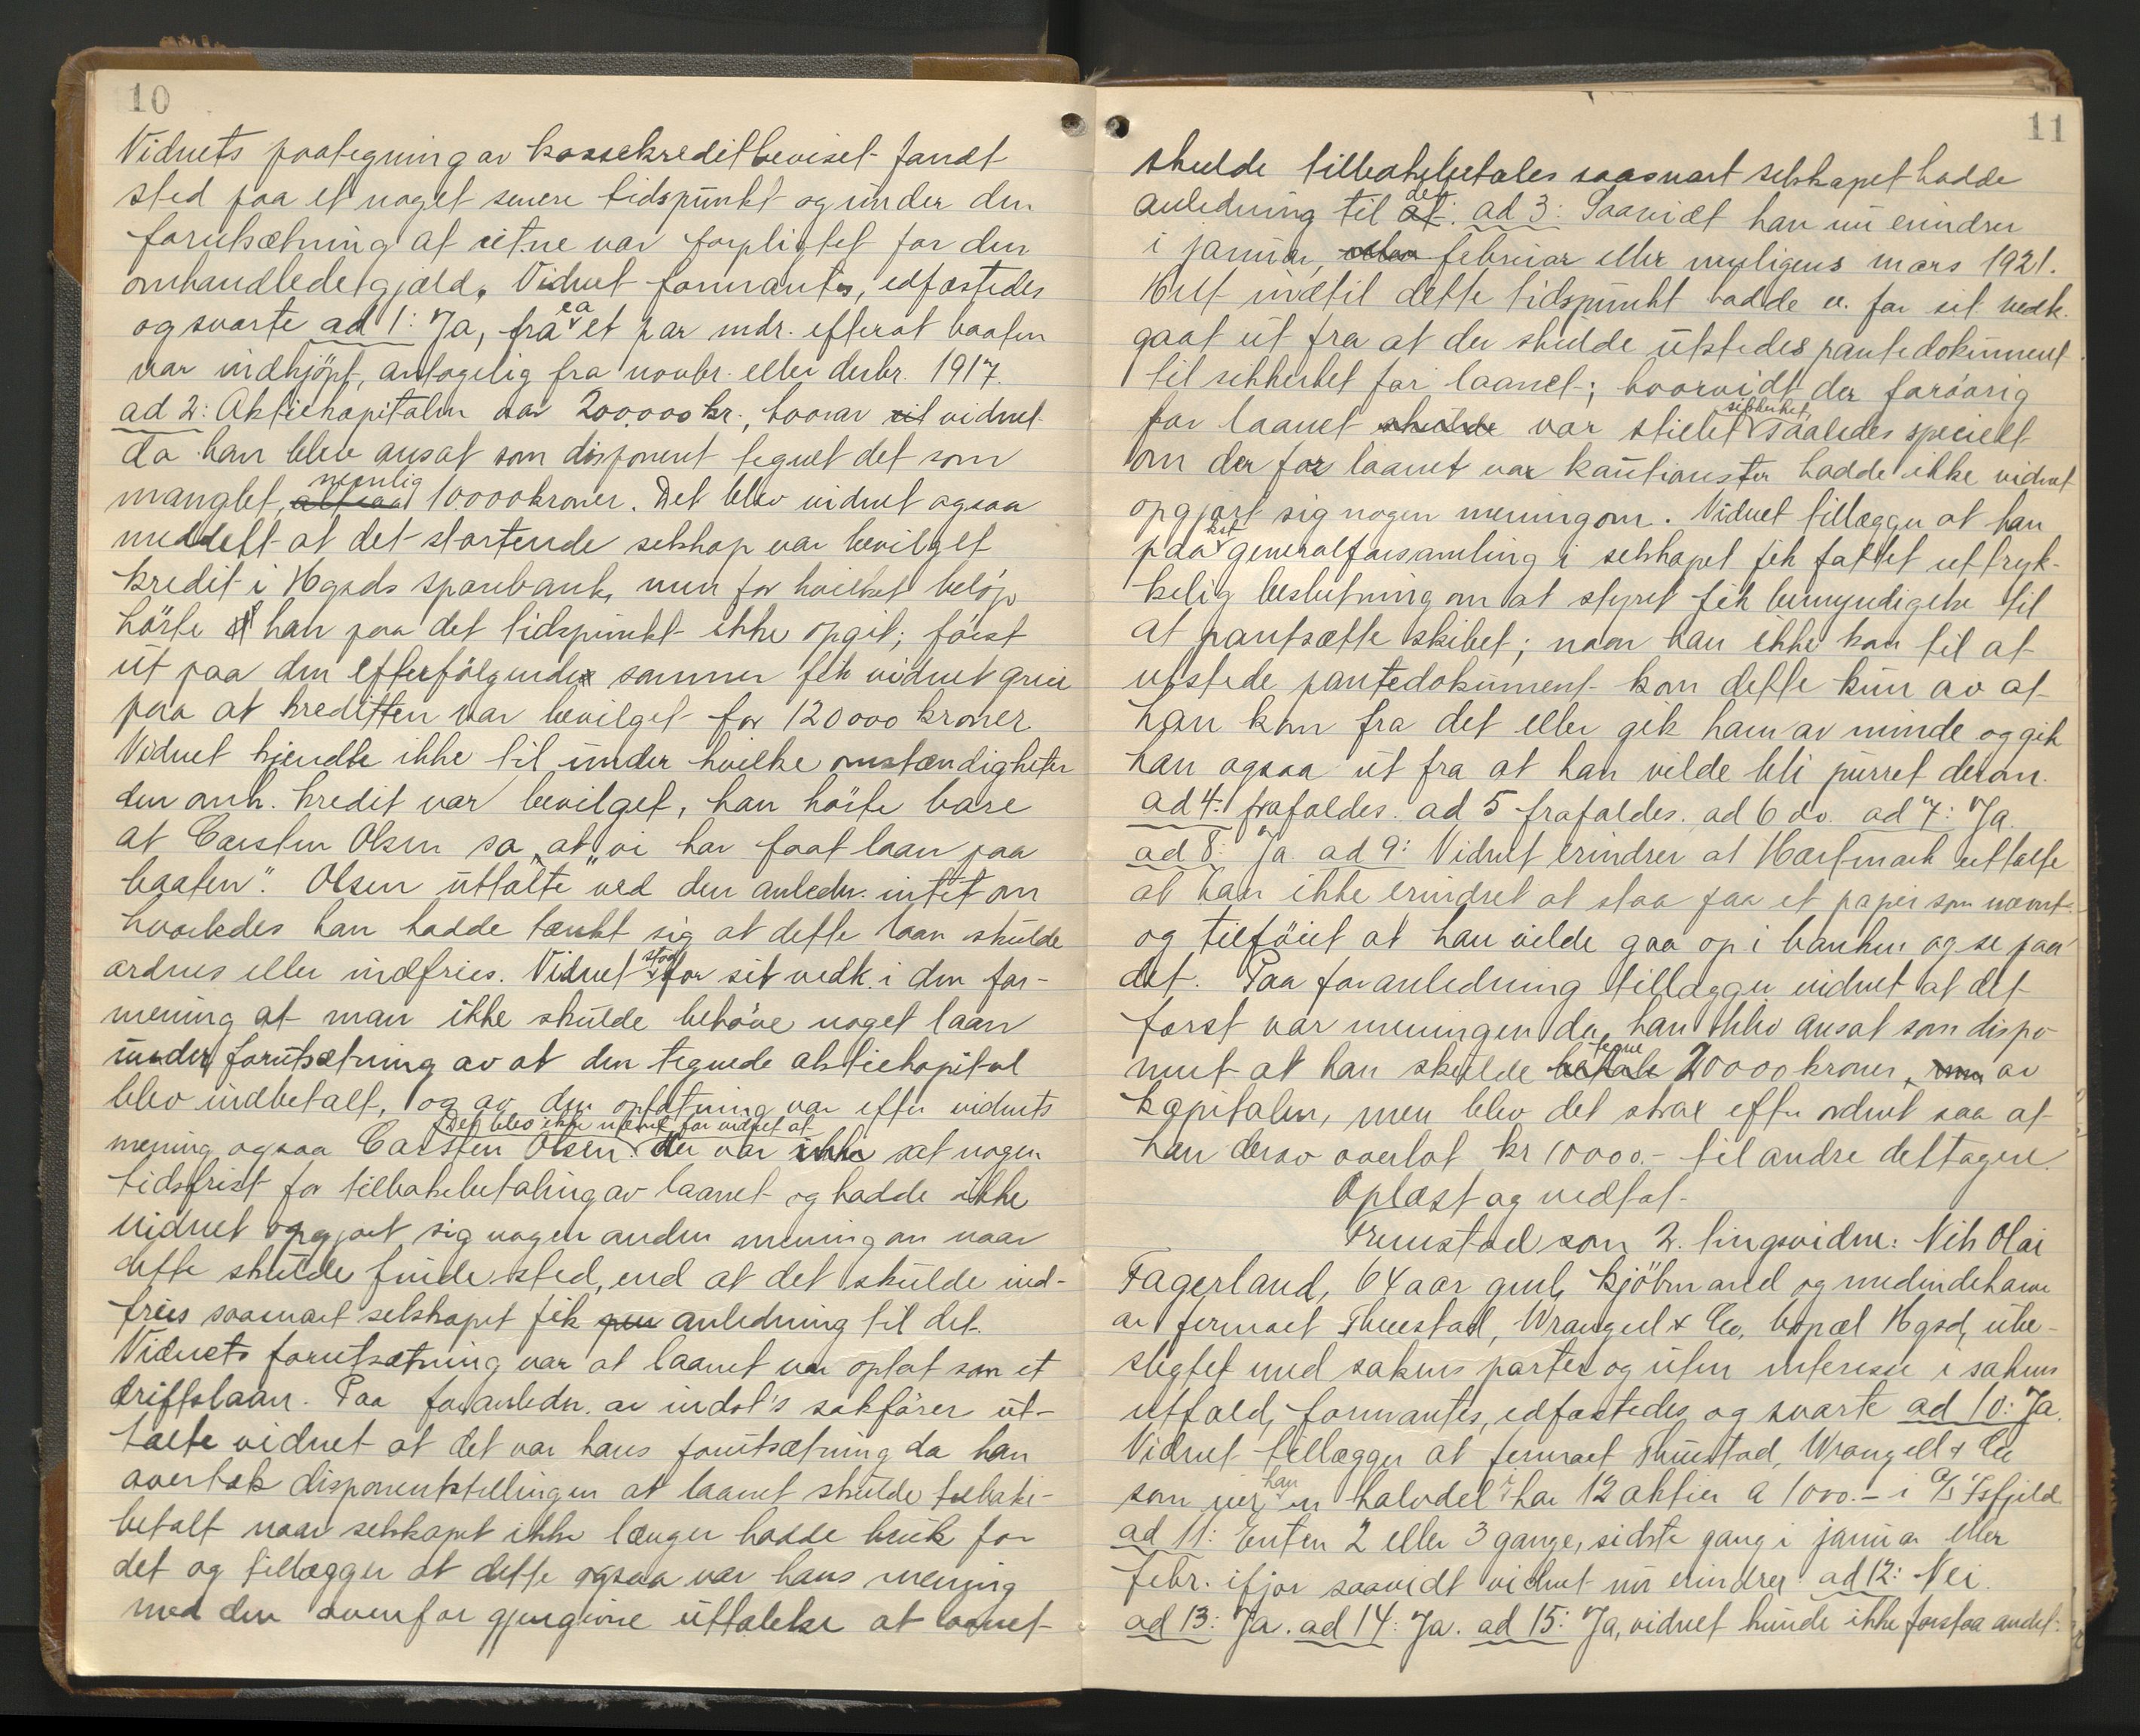 10
Vidnets paategning av kassekreditbeviset fandt
sted paa et noget senere tidspunkt og under den
forutsætning at citne var forpligtet for den
omhandlede gjæld. Vidnet formantes, edfæstedes
og svarte ad 1: Ja, fra ca et par mdr. efterat baaten
var indkjöpt, antagelig fra novbr. eller desbr. 1917.
ad 2: Aktiekapitalen var 200,000 kr., hvorav vidnet
da han blev ansat som disponent tegnet det som
manglet, altsaa nemlig 10.000 kroner. Det blev vidnet ogsaa
meddelt at det startende selskap var bevilget
kredit i Hgsds sparebank, men for hvilket belöp
hörte han paa det tidspunkt ikke opgit; först
ut paa den efterfölgende sommer fik vidnet greie
paa at kreditten var bevilget for 120000 kroner
Vidnet kjendte ikke til under hvilke omstændigheter
den omh. kredit var bevilget, han hörte bare
at Carsten Olsen sa, at "vi har faat laan paa
baaten". Olsen uttalte ved den anledn. intet om
hvorledes han hadde tænkt sig at dette laan skulde
ordnes eller indfries. Vidnet stod for sit vedk. i den for-
mening at man ikke skulde behöve noget laan
under forutsætning av at den tegnede aktiekapital
blev indbetalt, og av den opfatning var efter vidnets
mening ogsaa Carsten Olsen. Det blev ikke nævnt for vidnet at der var ikke sat nogen
tidsfrist for tilbakebetaling av laanet og hadde ikke
vidnet opgjort sig nogen anden mening om naar
dette skulde finde sted, end at det skulde ind-
fries saasnart selskapet fik anledning til det.
Vidnets forutsætning var at laanet var optat som et
driftslaan. Paa foranledn. av indst's sakförer ut-
talte vidnet at det var hans forutsætning da han
overtok disponentstillingen at laanet skulde tilbake-
betalt naar selskapet ikke længer hadde bruk for
det og tillægger at dette ogsaa var hans mening
med den ovenfor gjengivne uttalelse at laanet
11
skulde tilbakebetales saasnart selskapet hadde
anledning til at det. ad 3: Saavidt han nu erindrer
i januar, eller februar eller muligens mars 1921.
Helt indtil dette tidspunkt hadde v. for sit vedk.
gaat ut fra at der skulde utstedes pantedokument
til sikkerhet for laanet; hvorvidt der forövrig
for laanet skulde var stillet sikkerhet, saaledes specielt
om der for laanet var kautionister hadde ikke vidnet
opgjort sig nogen mening om. Vidnet tillægger at han
paa generalforsamling i selskapet fik fattet uttryk-
kelig beslutning om at styret fik bemyndigelse til
at pantsætte skibet; naar han ikke kom til at
utstede pantedokument kom dette kun av at
han kom fra det eller gik ham av minde og gik
han ogsaa ut fra at han vilde bli purret derom.
ad 4: frafaldes. ad 5 frafaldes. ad 6 do. ad 7: Ja.
ad 8: Ja. ad 9: Vidnet erindrer at Hartmark uttalte
at han ikke erindret at staa paa et papir som nævnt
og tilföiet at han vilde gaa op i banken og se paa
det. Paa foranledning tillægger vidnet at det
först var meningen da han blev ansat som dispo-
nent at han skulde betale tegne 20000 kroner, av
kapitalen, men blev det strax efter ordnet saa at
han derav overlot kr 10000.- til andre deltagere.
Oplæst og vedtat.
Fremstod som 2. tingsvidne: Nils Olai
Fagerland, 64 aar gml, kjöbmand og medindehaver
av firmaet Thuestad, Wrangell & Co, bopæl Hgsd, ube-
slegtet med sakens parter og uten interesse i sakens
utfald, formantes, edfæstedes og svarte ad 10: Ja.
Vidnet tillægger at firmaet Thuestad, Wrangell & Co
som eier han en halvdel i har 12 aktier a 1000.- i A/S Isfjeld
ad 11: Enten 2 eller 3 gange, sidste gang i januar eller
febr. ifjor saavidt vidnet nu erindrer. ad 12: Nei.
ad 13: Ja. ad 14: Ja. ad 15: Ja, vidnet kunde ikke forstaa andet.